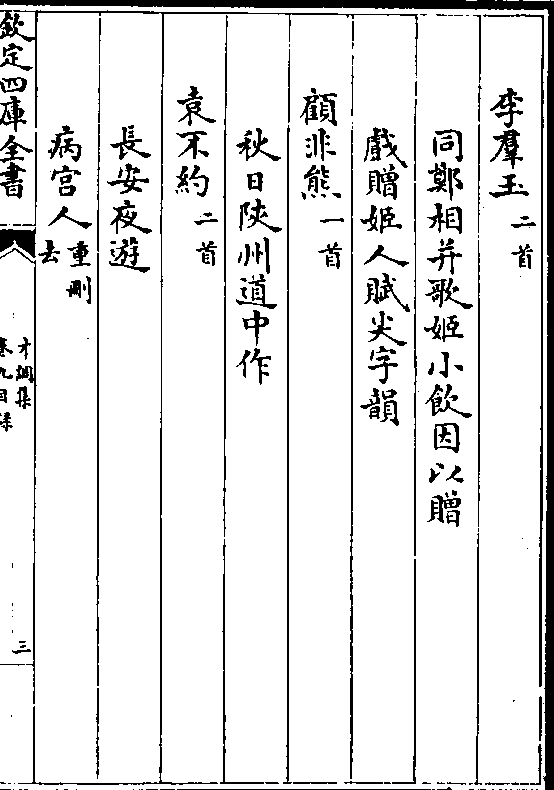 李羣玉二首
同鄭相并歌姬小飲因以贈
戲贈姬人賦尖字韻
顧非熊一首
秋日陝州道中作
袁不約二首
長安夜遊
病宫人重刪去
欽定四庫全書
才調集
卷九目錄
三